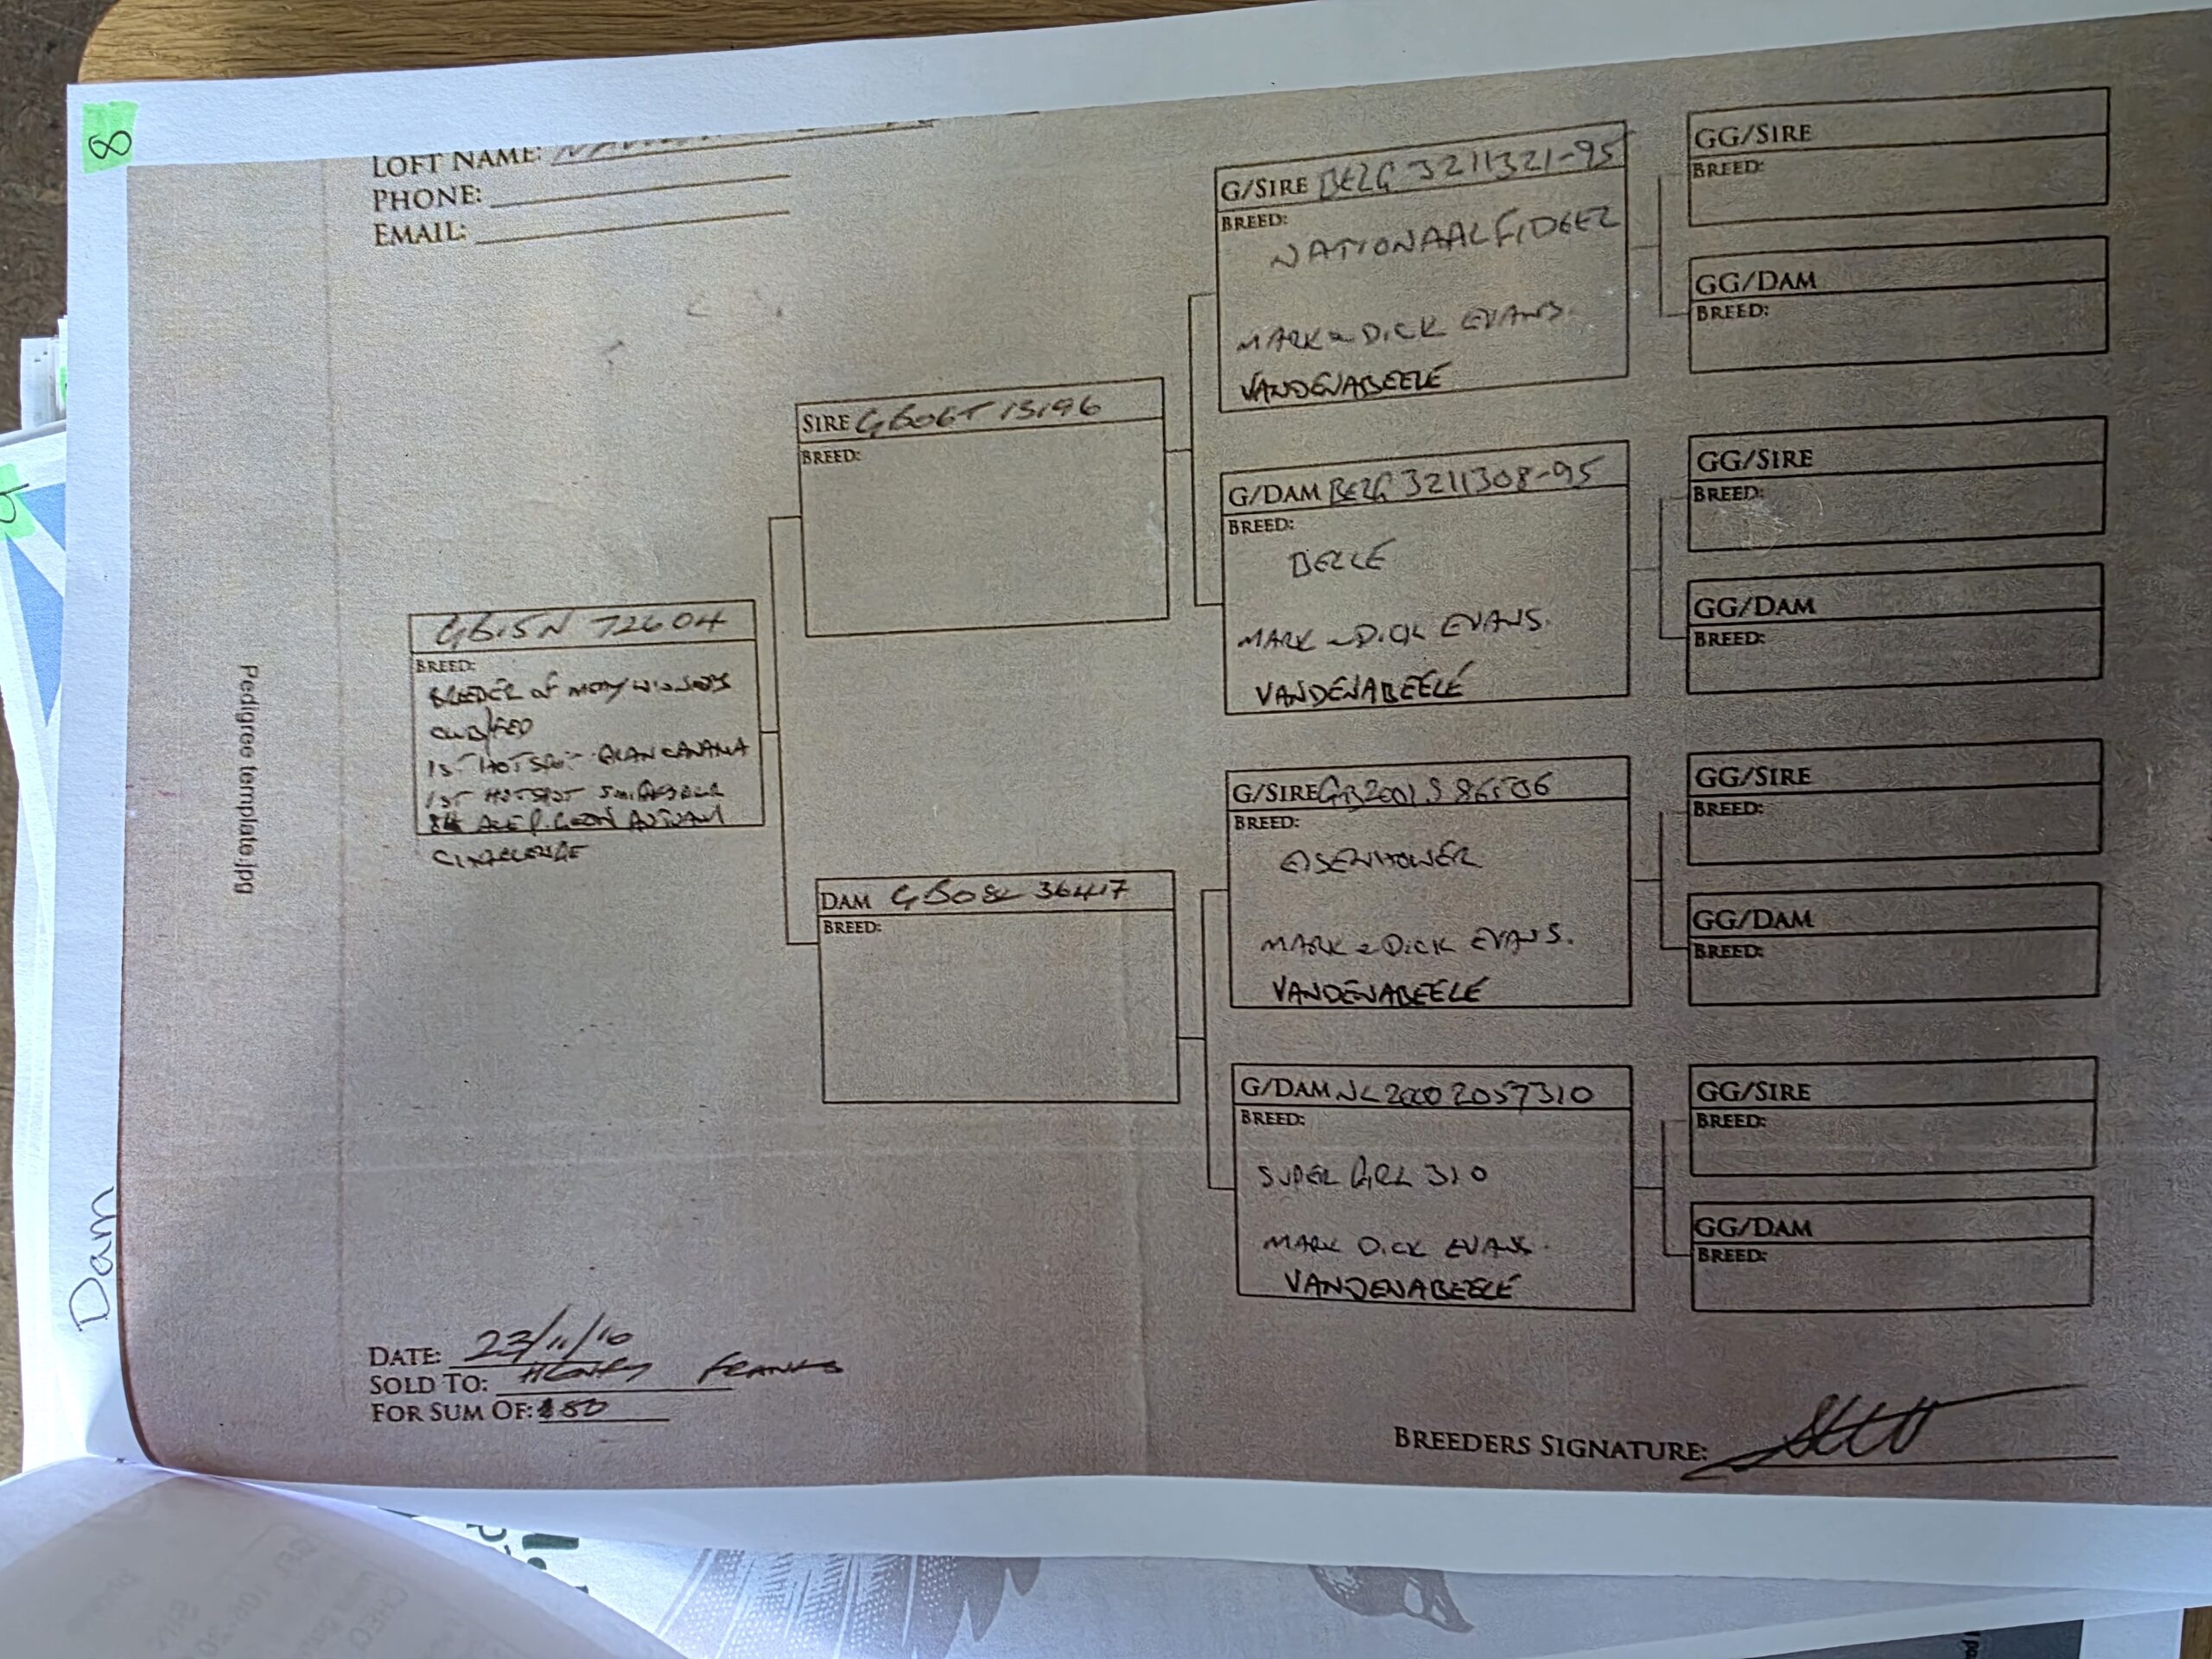 8
LOFT NAME:
PHONE:
EMAIL:
Pedigree template.jpg
GB15N 72604
BREED:
BREEDER of MANY WINNERS
CLUB/FED
1ST HOTSPOT GRAN CANARIA
1ST HOTSPOT
8th ACE PIGEON
CHALLENGE
SIRE GB06T 15196
BREED:
DAM GB08L 36417
BREED:
G/SIRE BELG 3211321-95
BREED:
NATIONAAL FIDGEL
MARK & DICK EVANS.
VANDENABEELE
G/DAM BELG 3211308-95
BREED:
BELLE
MARK & DICK EVANS.
VANDENABEELE
G/SIRE GB2001S 86506
BREED:
EISENHOWER
MARK & DICK EVANS.
VANDENABEELE
G/DAM NL2000 2057310
BREED:
SUPER GIRL 310
MARK DICK EVANS.
VANDENABEELE
GG/SIRE
BREED:
GG/DAM
BREED:
GG/SIRE
BREED:
GG/DAM
BREED:
GG/SIRE
BREED:
GG/DAM
BREED:
GG/SIRE
BREED:
GG/DAM
BREED:
Dam
DATE: 23/11/10
SOLD TO: HENRY FRANKS
FOR SUM OF: £80
BREEDERS SIGNATURE: